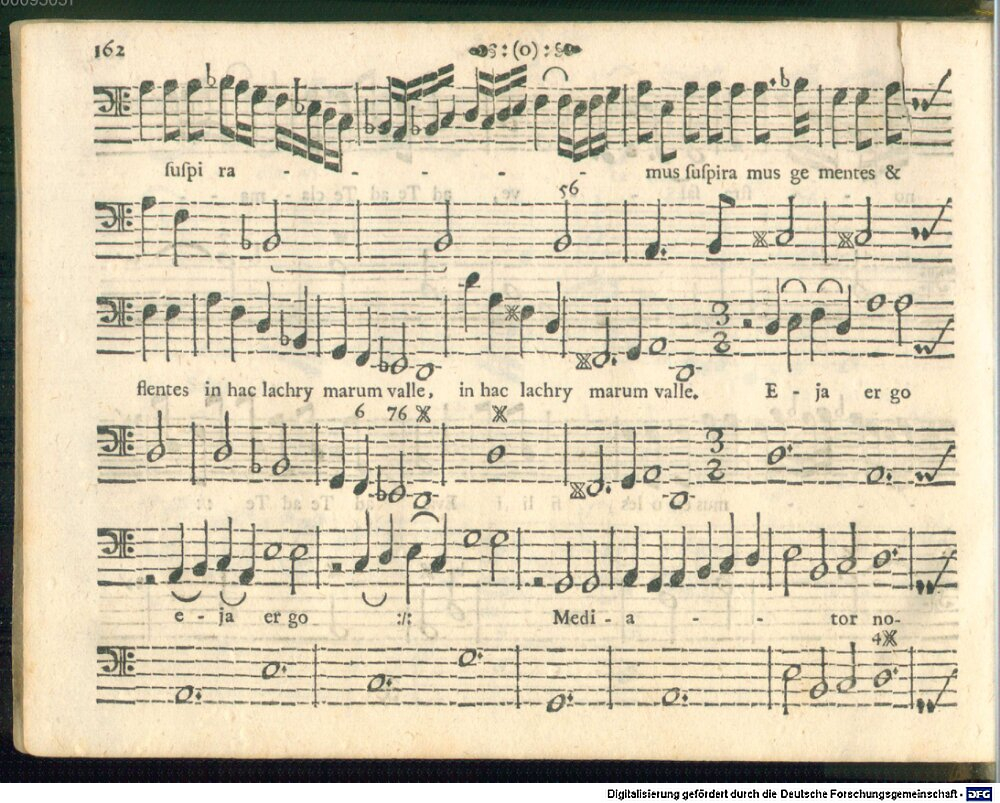 162 :(0):
ſuſpi ra - - - - - - mus ſuſpira mus ge mentes &
56
flentes in hac lachry marum valle, in hac lachry marum valle. E - ja er go
6 76
3 2
e - ja er go :/: Medi - a - - - tor no-
4
Digitalisierung gefördert durch die Deutsche Forschungsgemeinschaft - DFG